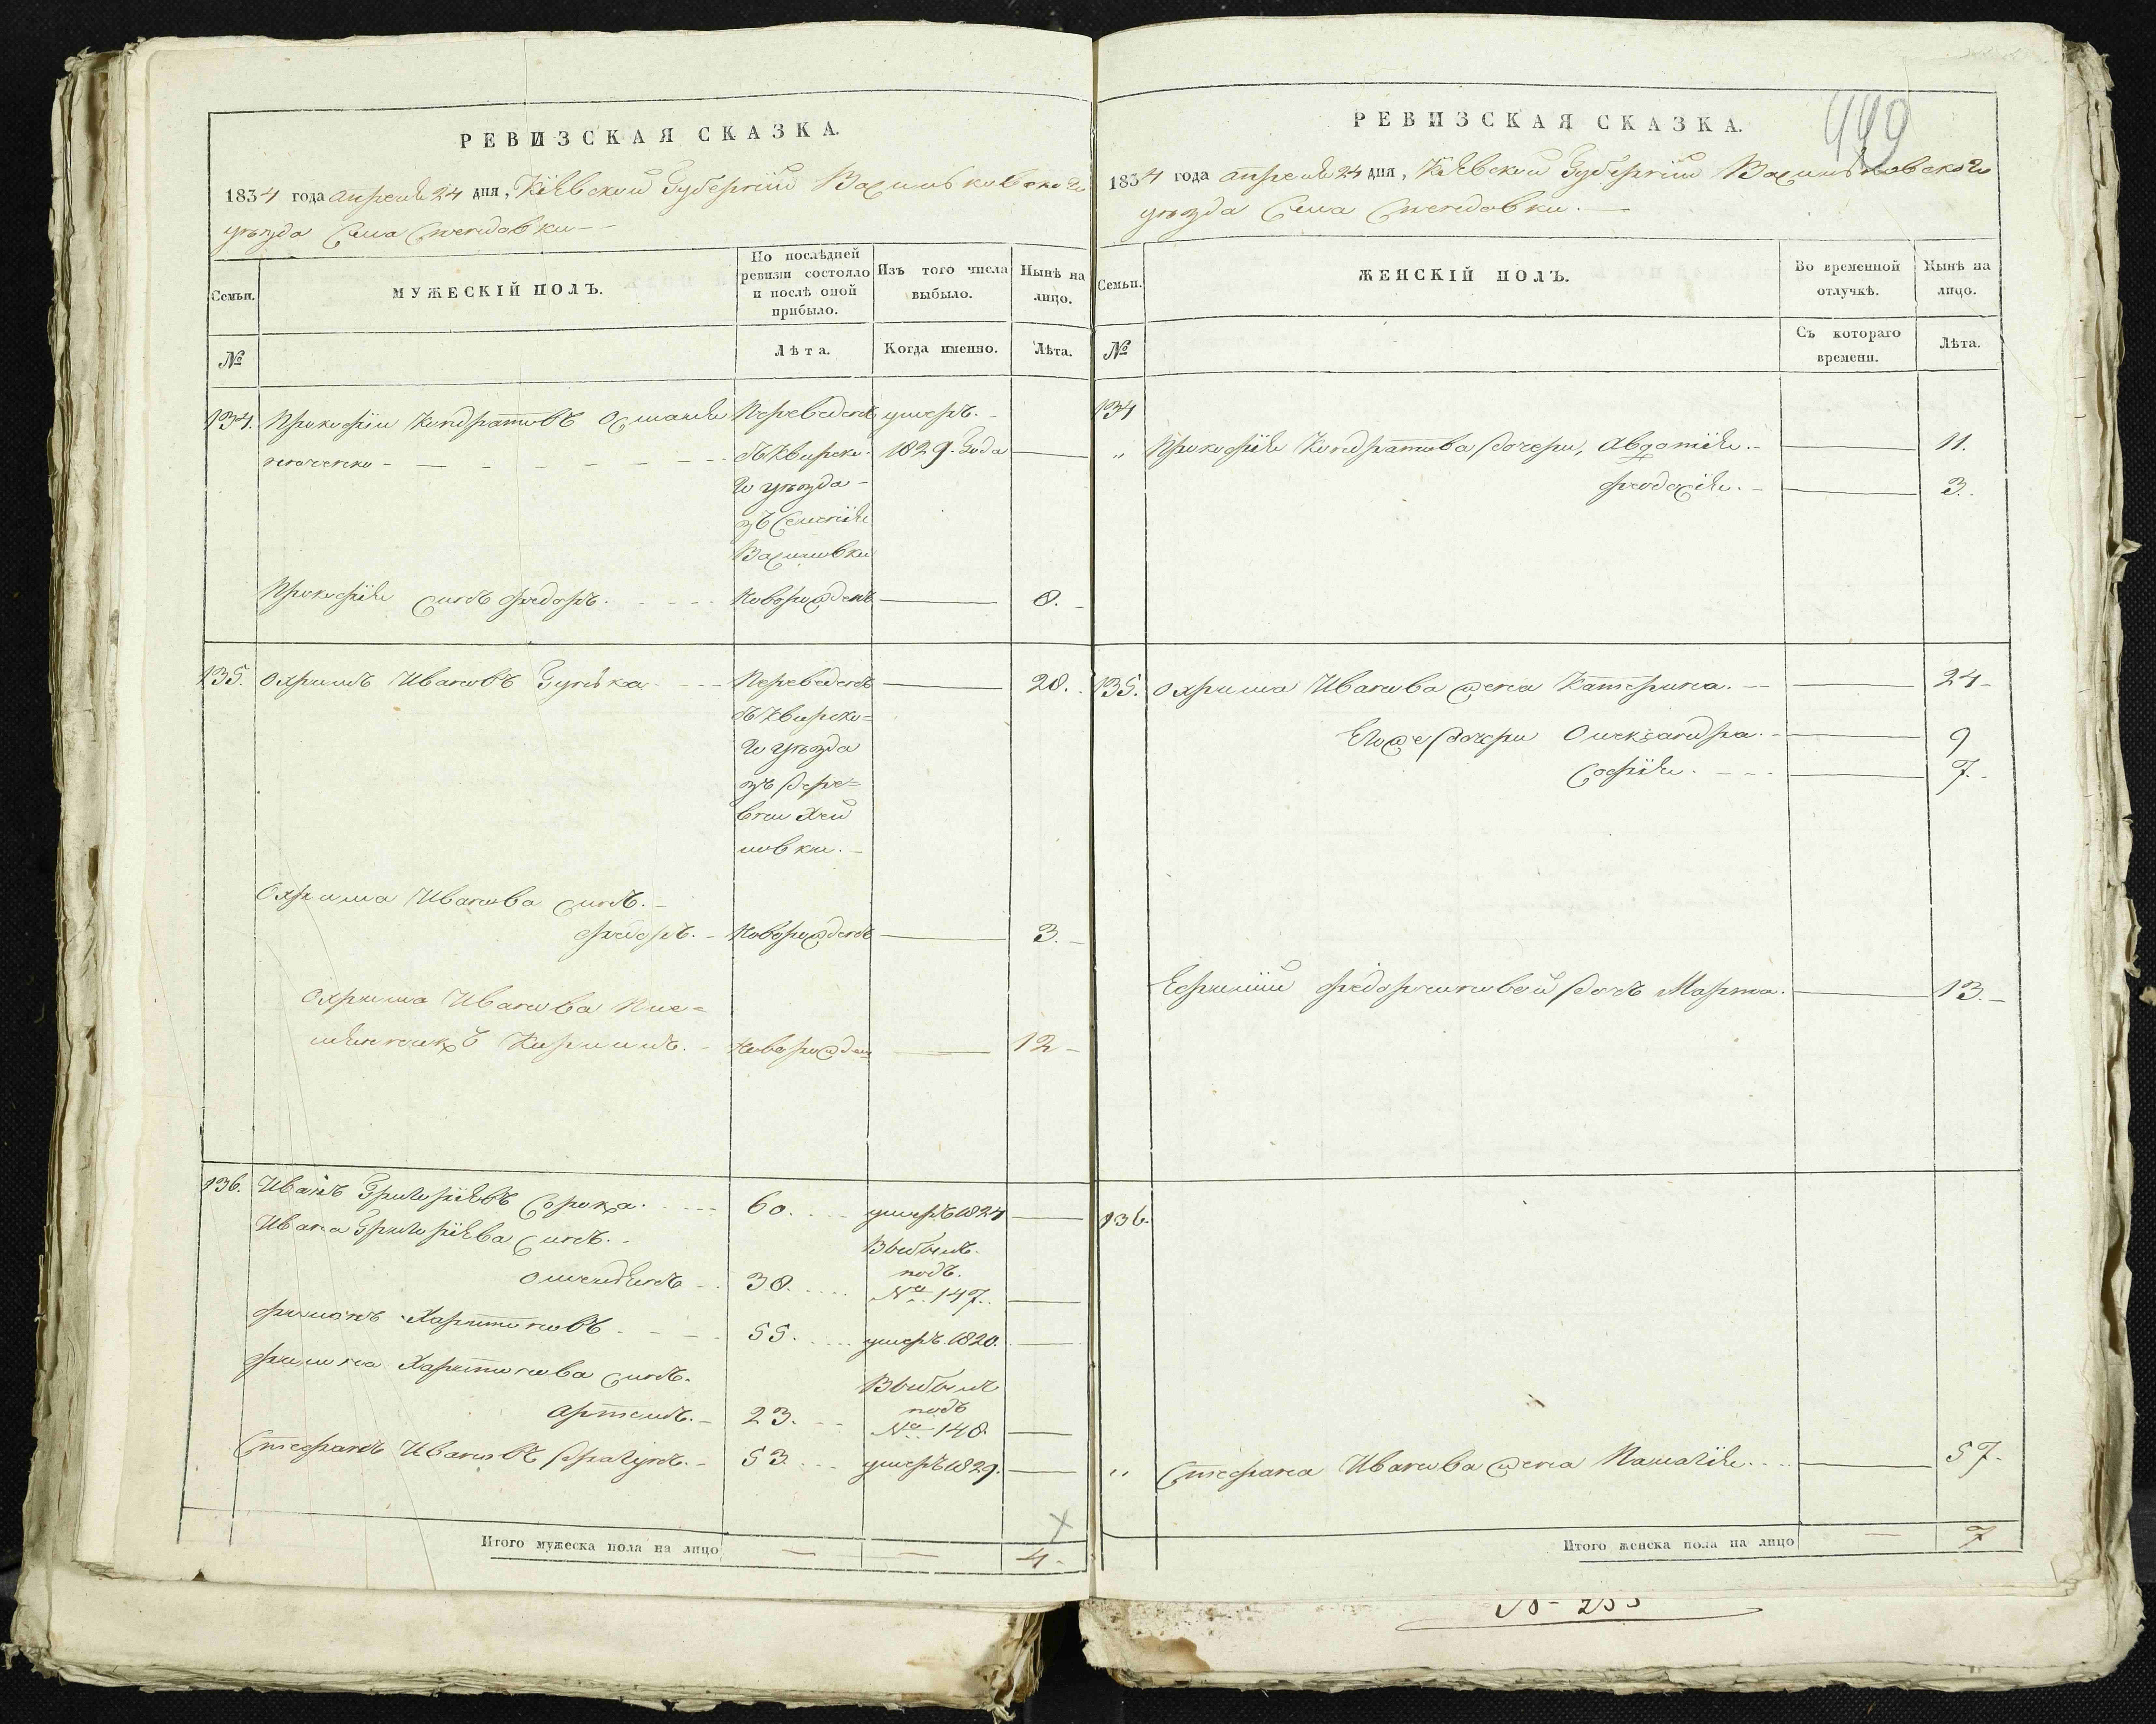 РЕВИЗСКАЯ СКАЗКА.
1834 года апреля 24 дня, Кіевской Губерніи Васильковского
уезда Села
Семьи.
МУЖЕСКІЙ ПОЛЪ.
По послѣдней ревизіи состояло и послѣ оной прибыло.
Изъ того числа выбыло.
Нынѣ на лицо.
№
Лѣта.
Когда именно.
Лѣта.
134. Прокофій Кондратовъ Переведенъ умеръ.
съ Квирско- 1829. Года
го уезда
Прокофія сынъ Федоръ. Новорожденъ 8.
135. Охримъ Ивановъ Гунька Переведенъ 28.
съ Квирско=
го уезда
изъ дере=
вни Хей
ловки.
Охрима Иванова сынъ.
Федоръ. Новорожденъ 3.
Охрима Иванова Пле=
мянникъ Кирилъ. Новорожден 12
136. Иванъ Григоріевъ Сорока. 60. умеръ 1824
Ивана Григоріева сынъ.
38. Выбылъ подъ № 147.
Филонъ Харитоновъ 55. умеръ. 1820.
Филона Харитонова сынъ.
Артемъ. 23. Выбылъ подъ № 148
Стефанъ Ивановъ 53. умеръ 1829.
Итого мужеска пола на лицо 4.
449
РЕВИЗСКАЯ СКАЗКА.
1834 года апреля 24 дня, Кіевской Губерніи Васильковского
уезда Села
Семьи.
ЖЕНСКІЙ ПОЛЪ.
Во временной отлучкѣ.
Нынѣ на лицо.
№
Съ котораго времени.
Лѣта.
134
" Прокофія Кондратова дочери, Авдотія. 11.
Феодосія. 3.
135. Охрима Иванова жена Катерина. 24
Егоже дочери Олександра. 9
Софія. 7.
дочь Марта. 13.
136.
" Стефана Иванова жена Палагія 57.
Итого женска пола на лицо 7